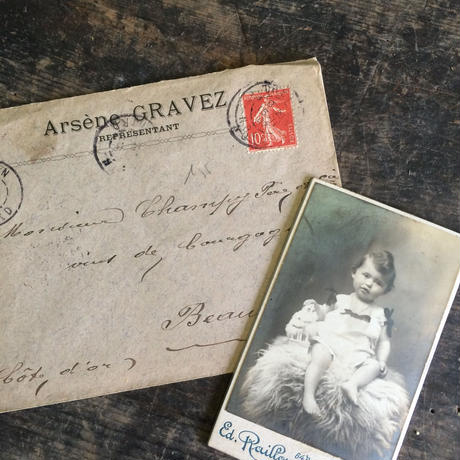 Arsène GRAVEZ
REPRESENTANT
10
Monsieur Champy Père
vins de Bourgogne
Beau
(Côte d'or)
Ed. Raillou
64